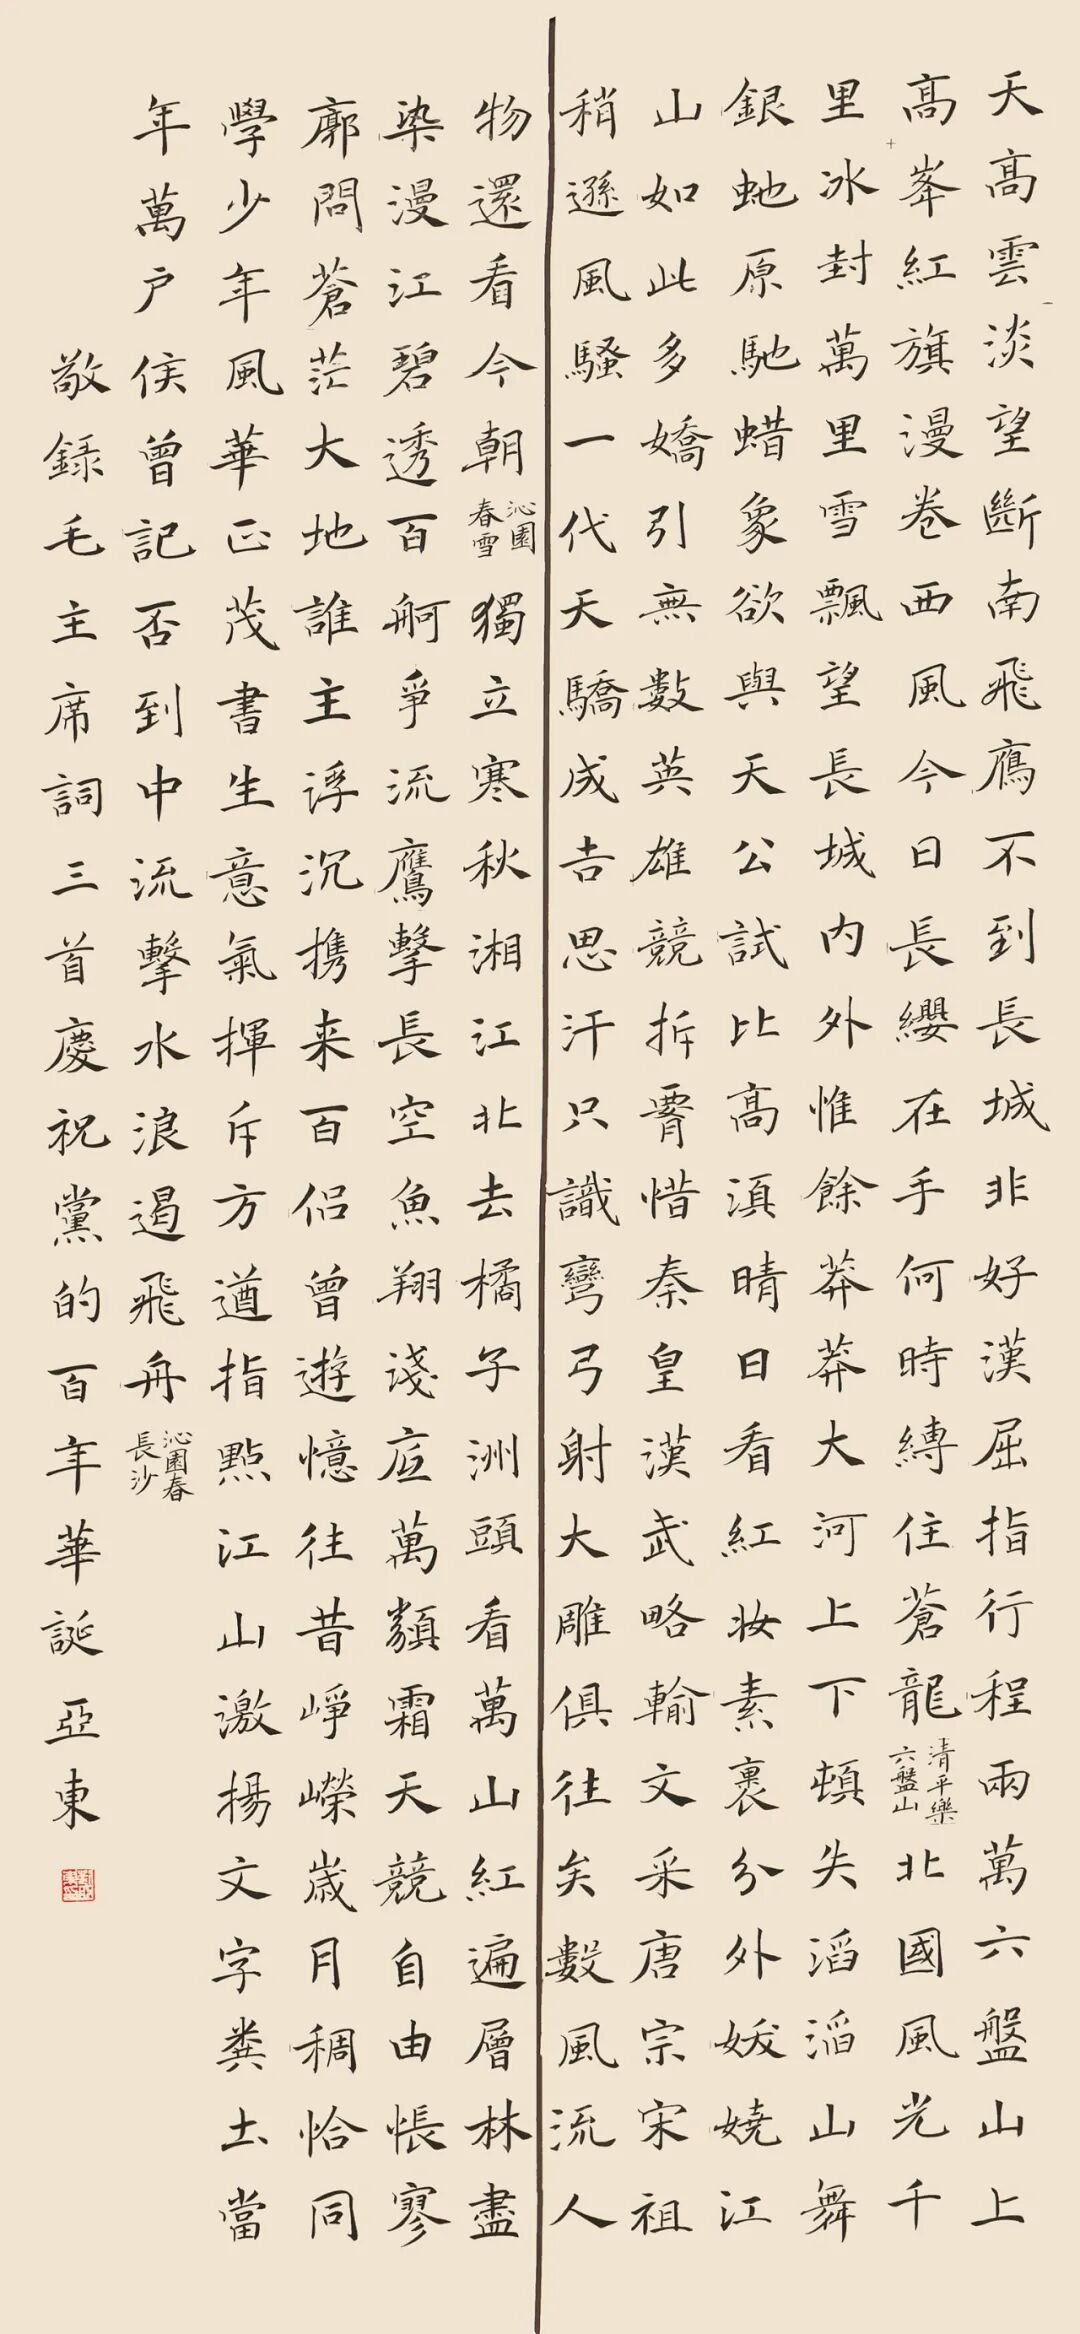 天高雲淡望斷南飛鴈不到長城非好漢屈指行程兩萬六盤山上
高峯紅旗漫卷西風今日長纓在手何時縛住蒼龍清平樂六盤山北國風光千
里冰封萬里雪飄望長城內外惟餘莽莽大河上下頓失滔滔山舞
銀虵原馳蜡象欲與天公試比高湏晴日看紅妝素裹分外妖嬈江
山如此多嬌引無數英雄競折腰惜秦皇漢武略輸文采唐宗宋祖
稍遜風騷一代天驕成吉思汗只識彎弓射大雕俱往矣數風流人
物還看今朝沁園春雪獨立寒秋湘江北去橘子洲頭看萬山紅遍層林盡
染漫江碧透百舸爭流鷹擊長空魚翔淺底萬類霜天競自由悵寥
廓問蒼茫大地誰主浮沉携来百侶曾遊憶往昔崢嶸歲月稠恰同
學少年風華正茂書生意氣揮斥方遒指點江山激揚文字糞土當
年萬户侯曾記否到中流擊水浪遏飛舟沁園春長沙
敬錄毛主席詞三首慶祝黨的百年華誕亞東